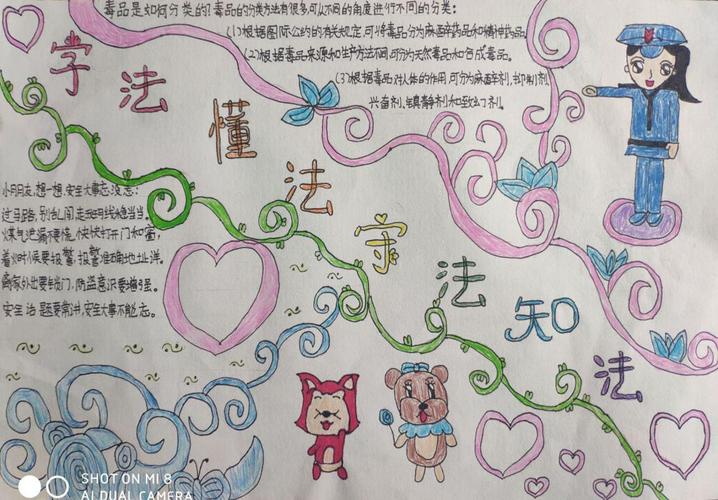 毒品是如何分类的?毒品的分类方法有很多,可以不同的角度进行不同的分类:
(1)根据国际公约的有关规定,可将毒品分为麻醉药品和精神药品。
(2)根据毒品来源和生产方法不同,可分为天然毒品和合成毒品。
(3)根据毒品对人体的作用,可分为麻醉剂、抑制剂、
兴奋剂、镇静剂和致幻剂。
学法懂法守法知法
小朋友想一想,安全大事忘没忘:
过马路,别乱闯,走斑马线稳当当。
煤气泄漏不要慌,快快打开门和窗,
着火时候要报警,报警准确地址详。
离家外出要锁门,防盗意识要增强。
安全治题要常讲,安全大事不能忘。
SHOT ON MI 8
AI DUAL CAMERA